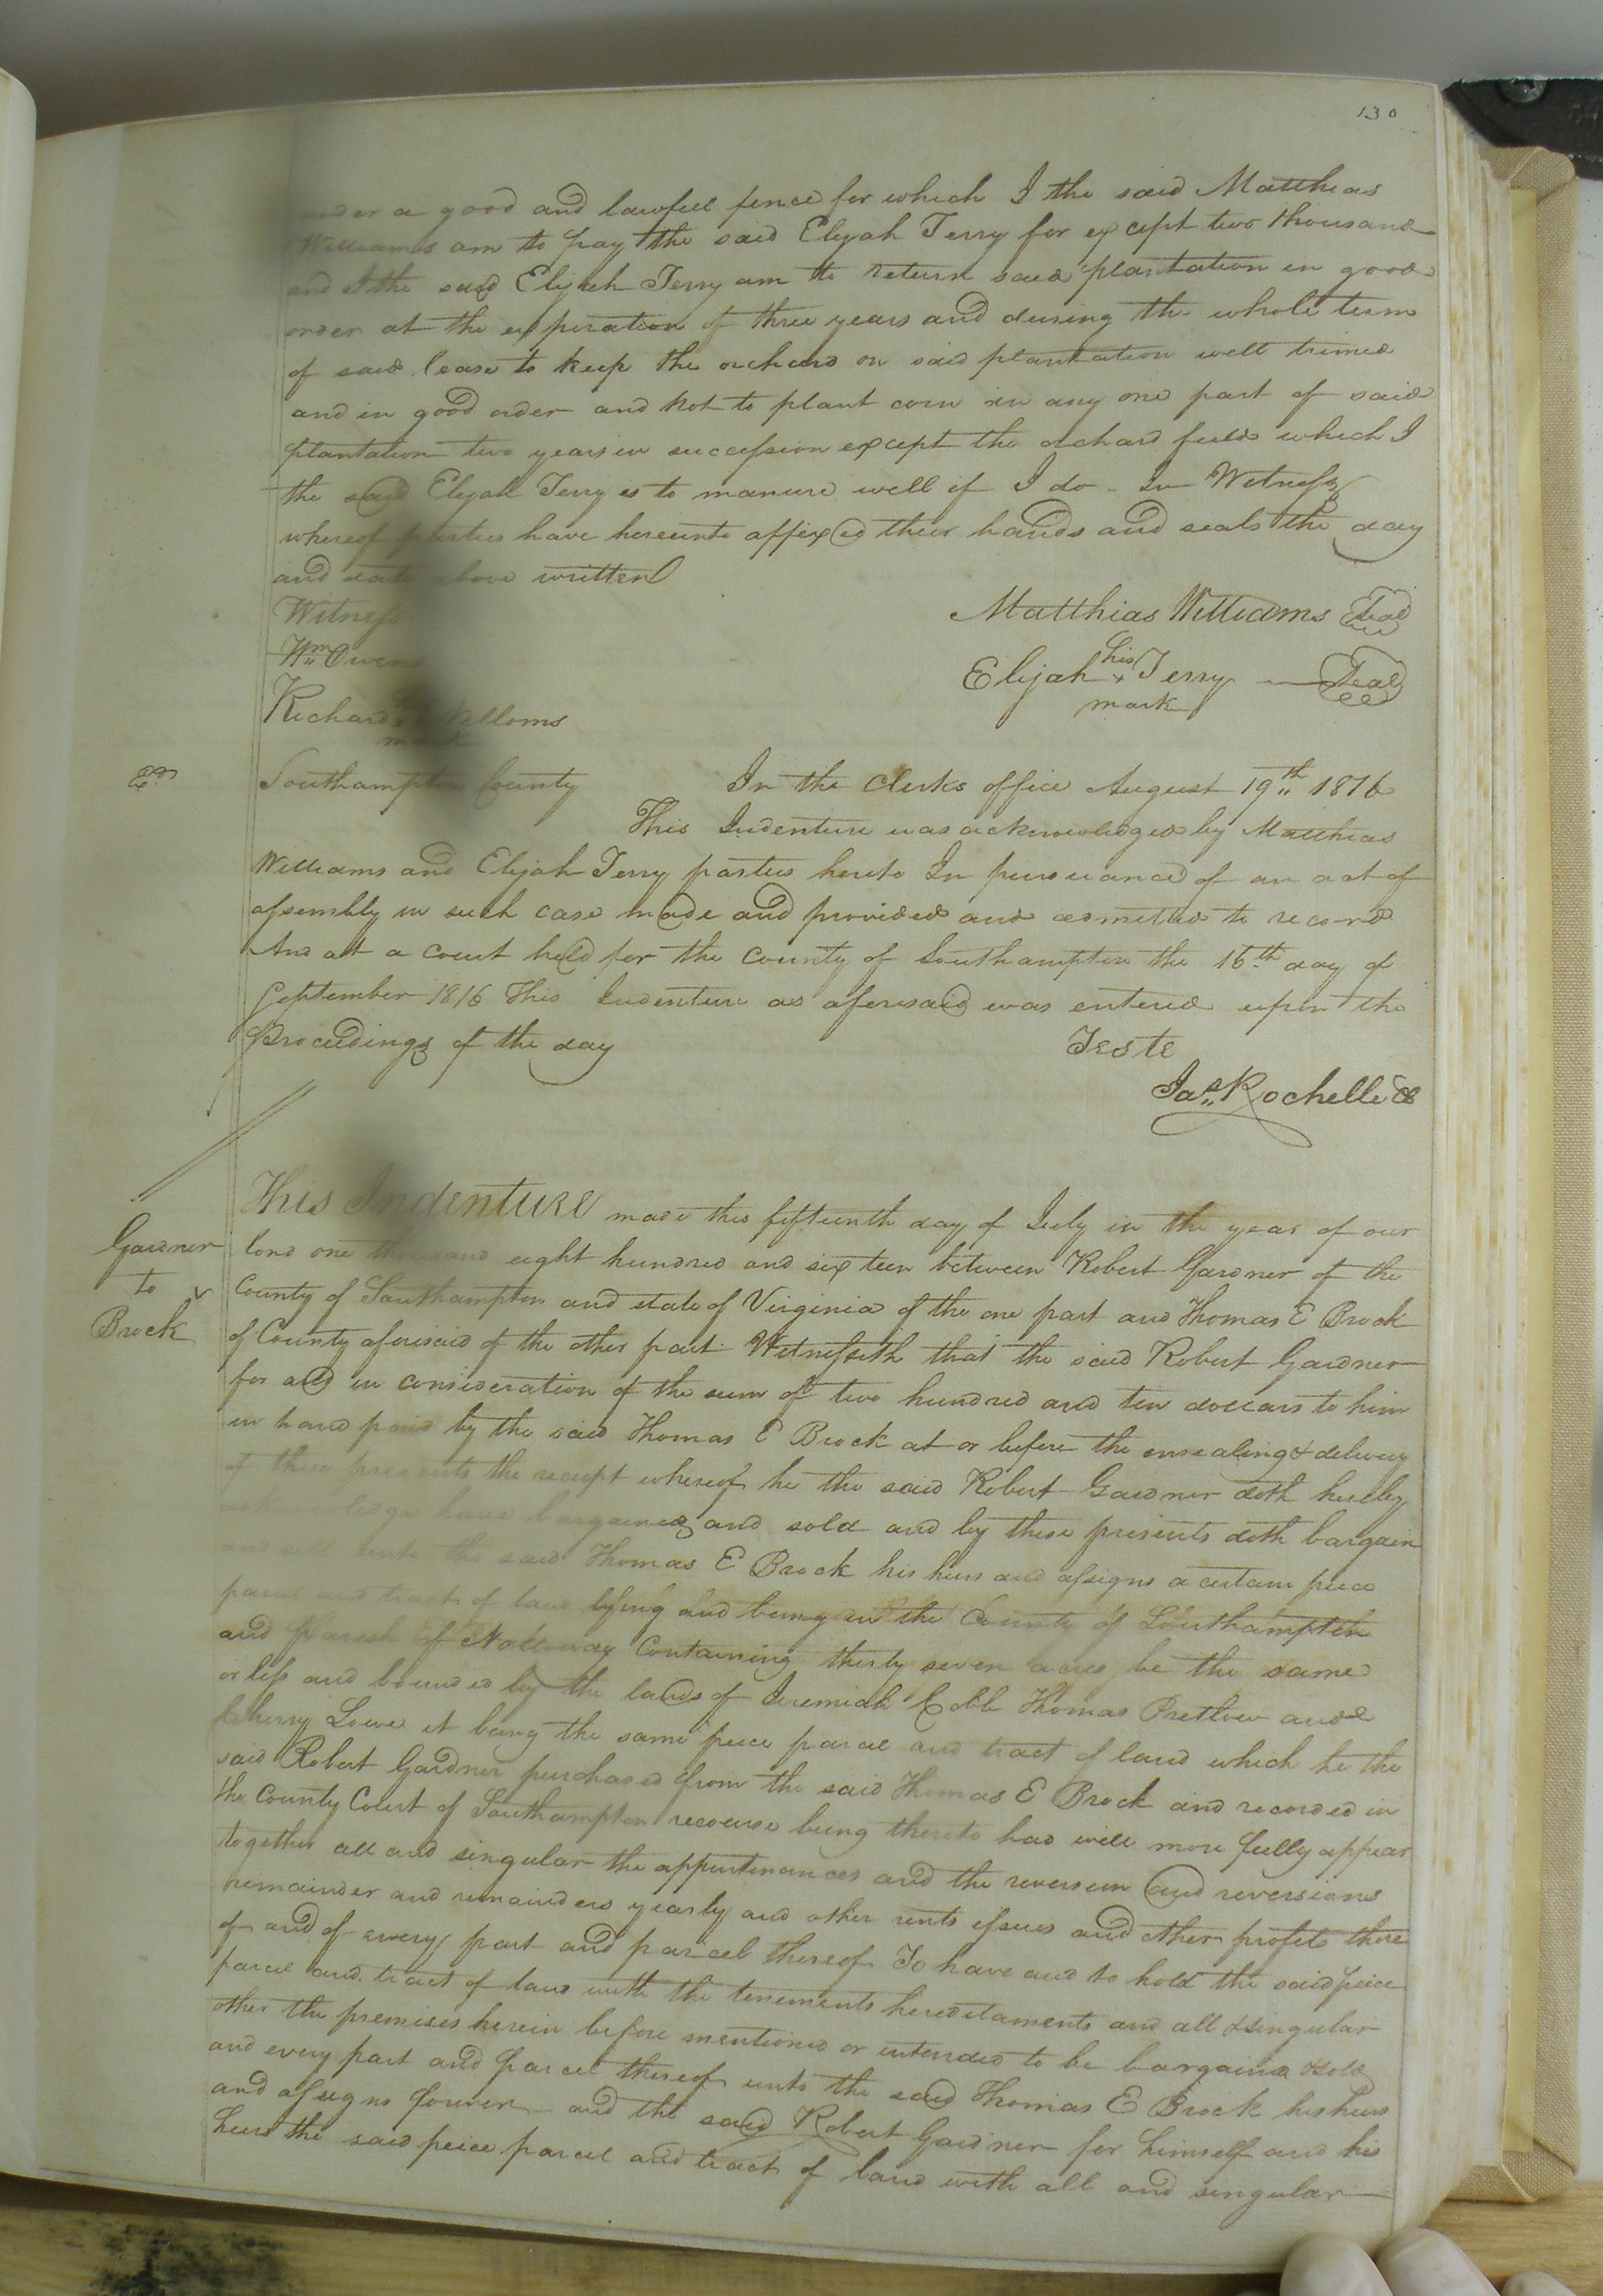 130
under a good and lawfull fence for which I the said Matthias
Williams am to pay the said Elijah Terry for except two thousand
and I the said Elijah Terry am to return said plantation in good
order at the expiration of three years and during the whole term
of said lease to keep the orchard on said plantation well trimed
and in good order and not to plant corn in any one part of said
plantation two years in succession except the orchard field which I
the said Elijah Terry is to manure well if I do - In Witness
whereof parties have hereunto affixed their hands and seals the day
and date above written
Witness
Matthias Williams Seal
Wm Owen
Elijah his x mark Terry Seal
Richard mark Welloms
Southampton County In the Clerks office August 19th 1816
This Indenture was acknowledged by Matthias
Williams and Elijah Terry parties hereto In pursuance of an act of
assembly in such case made and provided and admitted to record
And at a court held for the County of Southampton the 16th day of
September 1816 This Indenture as aforesaid was entered upon the
Proceedings of the day
Teste
Jas Rochelle
Gardner
to
Brock
This Indenture made this fifteenth day of July in the year of our
lord one thousand eight hundred and sixteen between Robert Gardner of the
County of Southampton and state of Virginia of the one part and Thomas E Brock
of County aforesaid of the other part Witnesseth that the said Robert Gardner
for and in consideration of the sum of two hundred and ten dollars to him
in hand paid by the said Thomas E Brock at or before the ensealing & delivery
of these presents the receipt whereof he the said Robert Gardner doth hereby
acknowledge have bargained and sold and by these presents doth bargain
and sell unto the said Thomas E Brock his heirs and assigns a certain peice
parcel and tract of land lying and being in the County of Southampton
and Parish of Nottoway Containing thirty seven acres be the same
or less and bounded by the lands of Jeremiah Cobb Thomas Pretlow and
Cherry Lowe it being the same peice parcel and tract of land which he the
said Robert Gardner purchased from the said Thomas E Brock and recorded in
the County Court of Southampton recourse being thereto had will more fully appear
together all and singular the appurtenances and the reversion and reversions
remainder and remainders yearly and other rents issues and other profits there
of and of every part and parcel thereof To have and to hold the said peice
parcel and tract of land with the tenements hereditaments and all & singular
other the premises herein before mentioned or intended to be bargained & sold
and every part and parcel thereof unto the said Thomas E Brock his heirs
and assigns forever and the said Robert Gardner for himself and his
heirs the said peice parcel and tract of land with all and singular